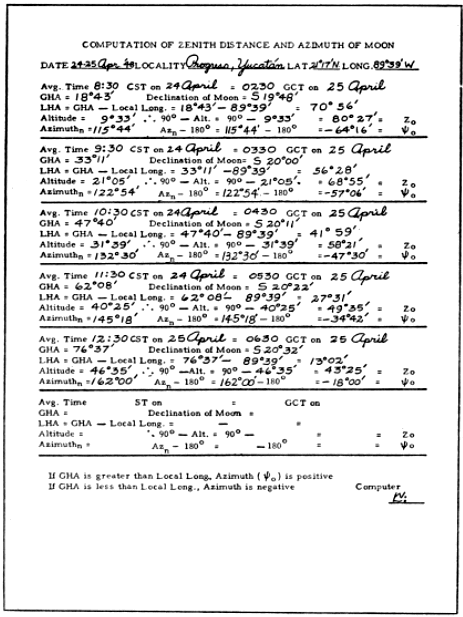 COMPUTATION OF ZENITH DISTANCE AND AZIMUTH OF MOON
DATE 24-25 Apr 48 LOCALITY Progreso, Yucatán LAT. 21°17'N LONG. 89°39'W
Avg. Time 8:30 CST on 24 April = 0230 GCT on 25 April
GHA = 18°43' Declination of Moon = S 19°48'
LHA = GHA — Local Long. = 18°43' — 89°39' = 70°56'
Altitude = 9°33' ∴ 90° — Alt. = 90° — 9°33' = 80°27' = Zo
Azimuthn = 115°44' Azn — 180° = 115°44' — 180° = —64°16' = ψo
Avg. Time 9:30 CST on 24 April = 0330 GCT on 25 April
GHA = 33°11' Declination of Moon = S 20°00'
LHA = GHA — Local Long. = 33°11' — 89°39' = 56°28'
Altitude = 21°05' ∴ 90° — Alt. = 90° — 21°05' = 68°55' = Zo
Azimuthn = 122°54' Azn — 180° = 122°54' — 180° = —57°06' = ψo
Avg. Time 10:30 CST on 24 April = 0430 GCT on 25 April
GHA = 47°40' Declination of Moon = S 20°11'
LHA = GHA — Local Long. = 47°40' — 89°39' = 41°59'
Altitude = 31°39' ∴ 90° — Alt. = 90° — 31°39' = 58°21' = Zo
Azimuthn = 132°30' Azn — 180° = 132°30' — 180° = —47°30' = ψo
Avg. Time 11:30 CST on 24 April = 0530 GCT on 25 April
GHA = 62°08' Declination of Moon = S 20°22'
LHA = GHA — Local Long. = 62°08' — 89°39' = 27°31'
Altitude = 40°25' ∴ 90° — Alt. = 90° — 40°25' = 49°35' = Zo
Azimuthn = 145°18' Azn — 180° = 145°18' — 180° = —34°42' = ψo
Avg. Time 12:30 CST on 25 April = 0630 GCT on 25 April
GHA = 76°37' Declination of Moon = S 20°32'
LHA = GHA — Local Long. = 76°37' — 89°39' = 13°02'
Altitude = 46°35' ∴ 90° — Alt. = 90° — 46°35' = 43°25' = Zo
Azimuthn = 162°00' Azn — 180° = 162°00' — 180° = —18°00' = ψo
Avg. Time ST on = GCT on
GHA = Declination of Moon =
LHA = GHA — Local Long. = — =
Altitude = ∴ 90° — Alt. = 90° — = = Zo
Azimuthn = Azn — 180° = — 180° = = ψo
If GHA is greater than Local Long, Azimuth (ψo) is positive
If GHA is less than Local Long., Azimuth is negative Computer